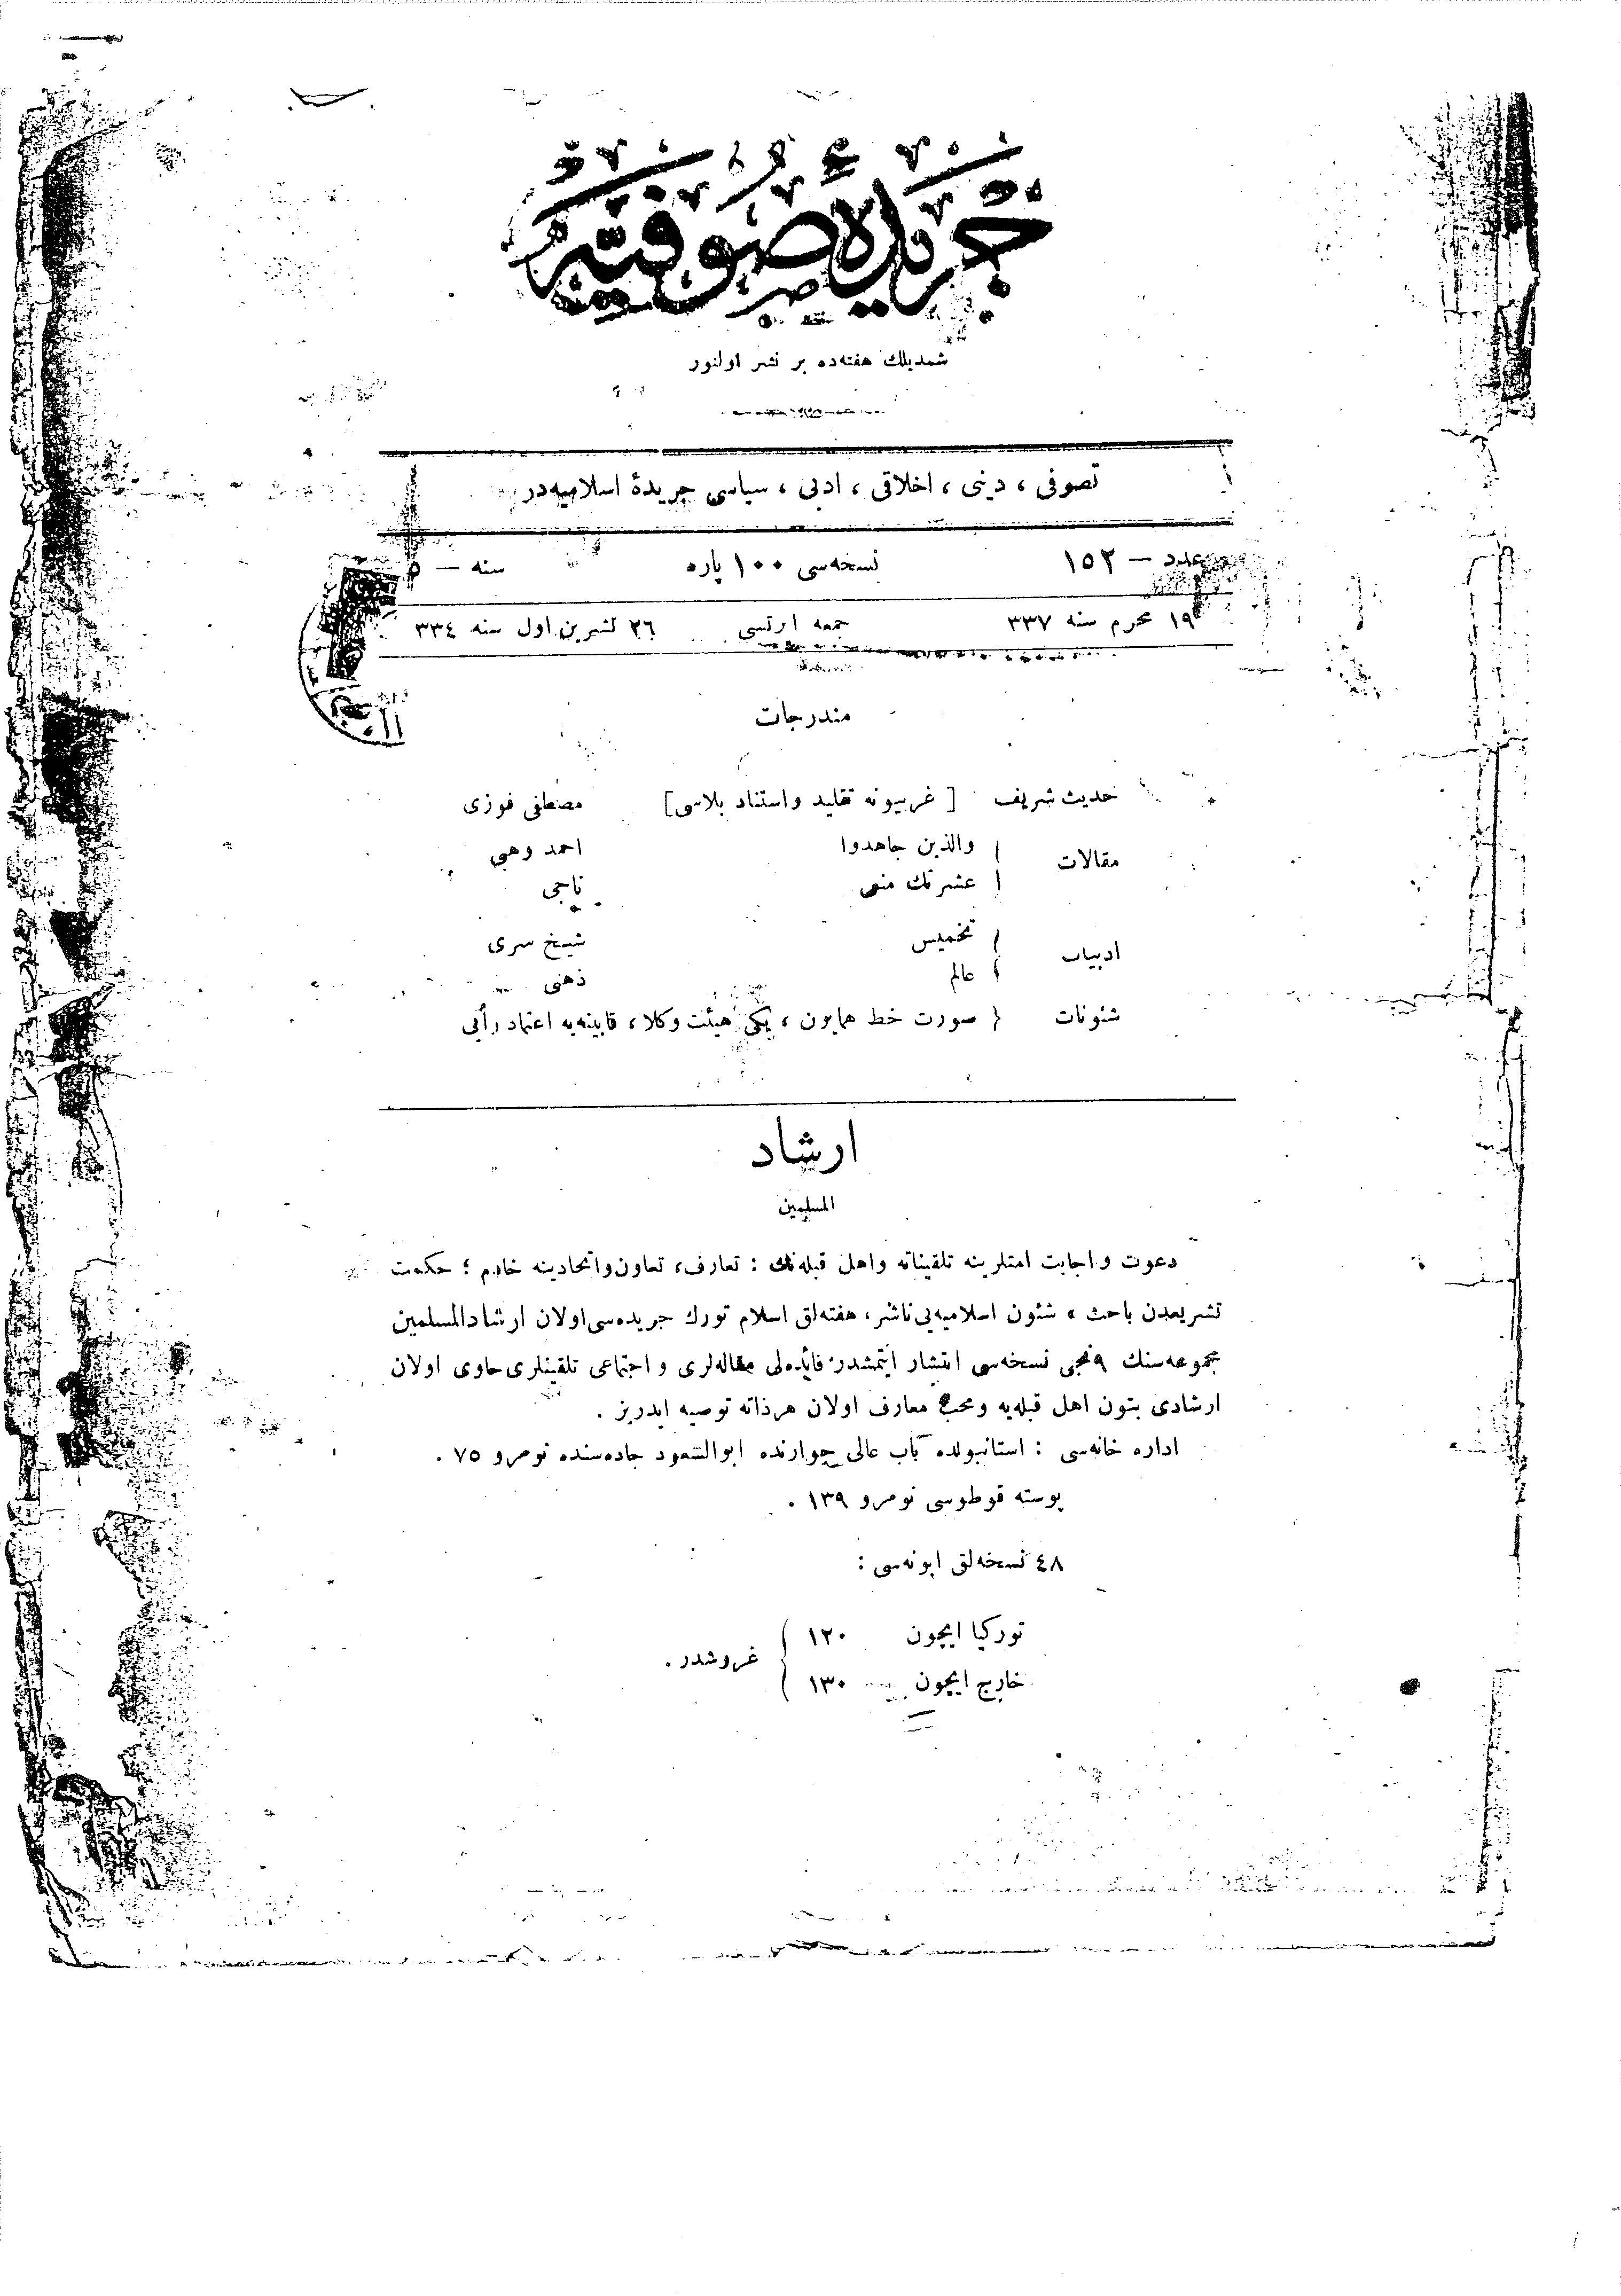 جريدۀ صوفيه
شمديلك هفته‌ده بر نشر اولنور
تصوفى ، دينى ، اخلاقى ، ادبى ، سياسى جريدۀ اسلاميه‌در
عدد — ١٥٢ نسخه‌سى ١٠٠ پاره سنه — ٥
١٩ محرم سنه ٣٣٧ جمعه ارتسى ٢٦ تشرين اول سنه ٣٣٤
مندرجات
حديث شريف [ غربيونه تقليد و استناد بلاسى] مصطفى فوزى
مقالات
والذين جاهدوا احمد وهبى
عشرتك منعى ناجى
ادبيات
تخميس شيخ سرى
عالم ذهنى
شئونات { صورت خط همايون ، يكى هيئت وكلا ، قابينه‌يه اعتماد رأيى
ارشاد
المسلمين
دعوت و اجابت امتلرينه تلقيناته واهل قبله‌نك : تعارف ، تعاون و اتحادينه خادم ؛ حكمت
تشريعدن باحث ، شئون اسلاميه‌يى ناشر ، هفته‌لق اسلام تورك جريده‌سى اولان ارشاد المسلمين
مجموعه‌سنك ٩ نجى نسخه‌سى انتشار ايتمشدر. فائده‌لى مقاله‌لرى و اجتماعى تلقينلرى حاوى اولان
ارشادى بتون اهل قبله‌يه و محب معارف اولان هر ذاته توصيه ايدريز .
اداره خانه‌سى : استانبولده باب عالى جوارنده ابوالسعود جاده‌سنده نومرو ٧٥ .
پوسته قوطوسى نومرو ١٣٩ .
٤٨ نسخه‌لق ابونه‌سى :
توركيا ايچون ١٢٠
خارج ايچون ١٣٠
غروشدر .